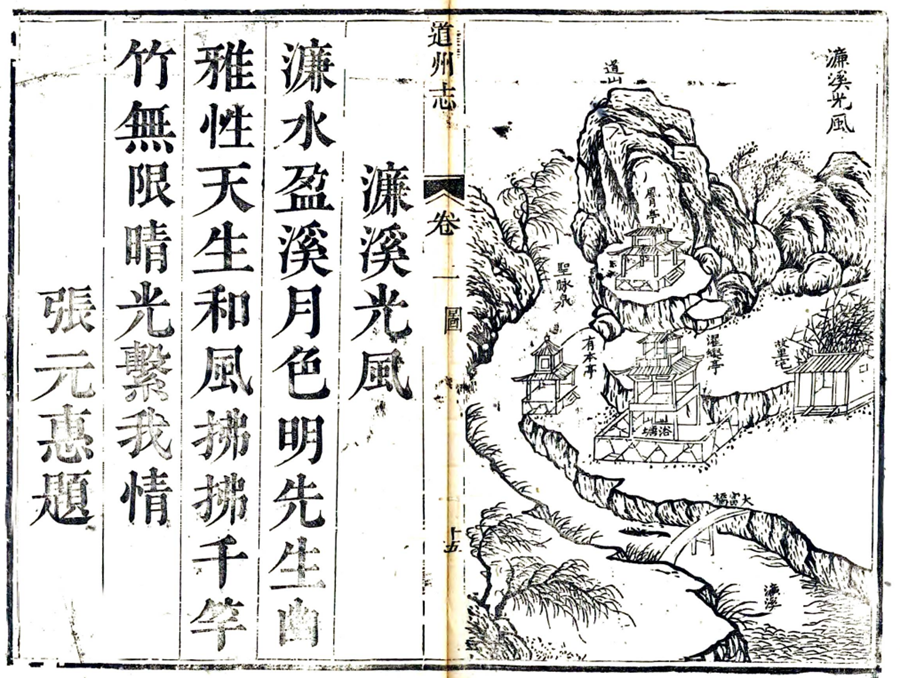 濂溪光風
道山
聖脉泉
有本亭
濯纓亭
大富橋
濂溪
道州志
卷一
圖
十五
濂溪光風
濂水盈溪月色明先生幽
雅性天生和風拂拂千竿
竹無限晴光繫我情
張元惠題